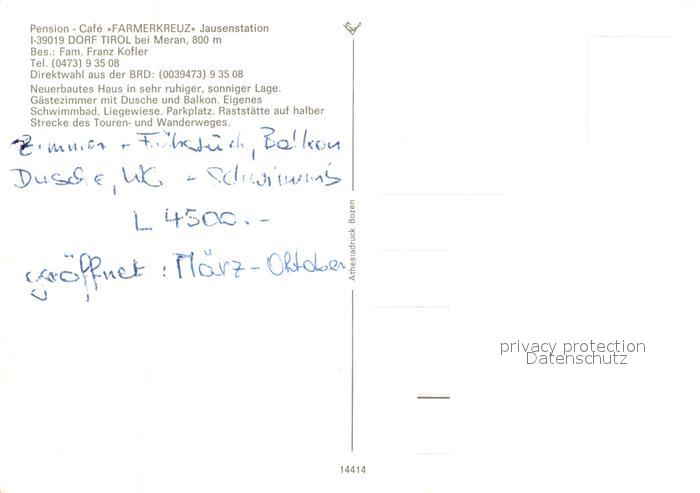 Pension - Café »FARMERKREUZ« Jausenstation
I-39019 DORF TIROL bei Meran, 800 m
Bes.: Fam. Franz Kofler
Tel. (0473) 9 35 08
Direktwahl aus der BRD: (0039473) 9 35 08
Neuerbautes Haus in sehr ruhiger, sonniger Lage.
Gästezimmer mit Dusche und Balkon. Eigenes
Schwimmbad, Liegewiese. Parkplatz. Raststätte auf halber
Strecke des Touren- und Wanderweges.
Zimmer + Frühstück, Balkon
Dusche, WC +
L 4500.-
geöffnet : März - Oktober
Athesiadruck Bozen
privacy protection
Datenschutz
14414